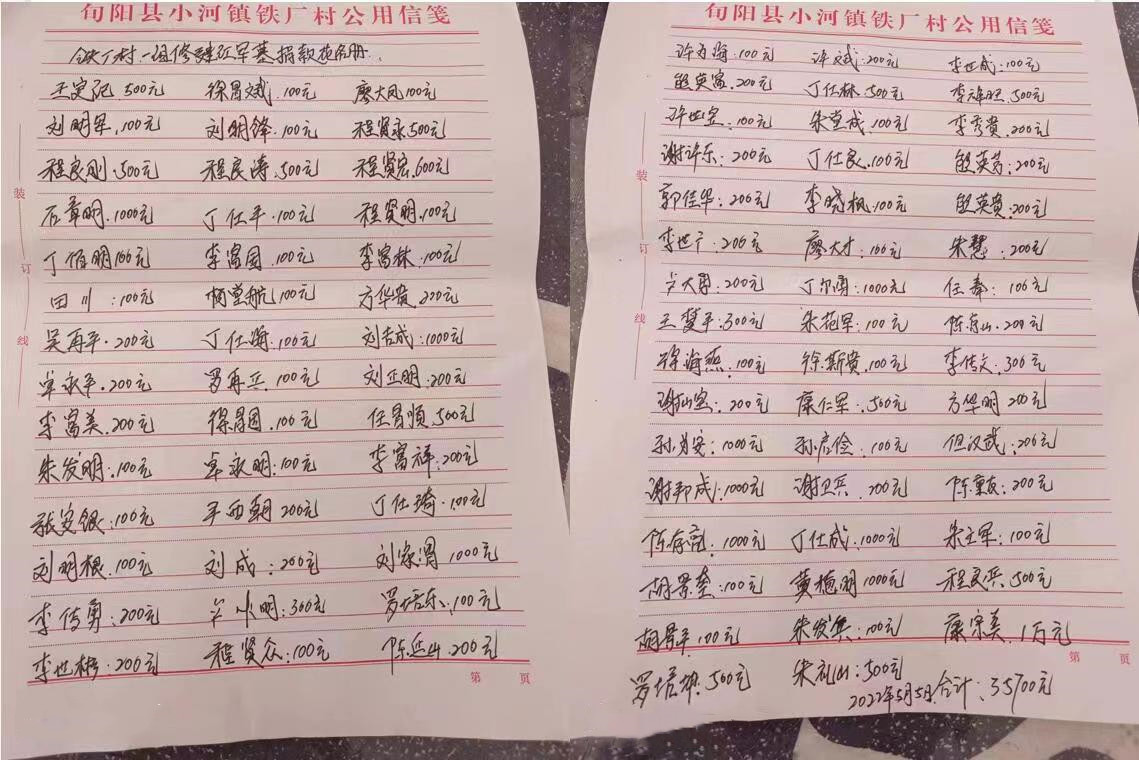 旬阳县小河镇铁厂村公用信笺
铁厂村一组修建红军墓捐款花名册
王定记.500元 徐昌斌.100元 廖大凤100元
刘明军.100元 刘明锋.100元 程贤永500元
程良刚.500元 程良涛.500元 程贤宏600元
石章明.1000元 丁仕平.100元 程贤明.100元
丁伯明100元 李富国.100元 李富林.100元
田川:100元 堂航100元 方华贵.200元
吴再平.200元 丁仕海.100元 刘吉成:1000元
卓永平.200元 罗再兵.100元 刘正明.200元
李富美.200元 徐昌国.100元 任昌顺.500元
朱发明:100元 卓永明:100元 李富祥:200元
张安银:100元 西朝200元 丁仕琦.100元
刘明根.100元 刘成:200元 刘家渭1000元
李传勇:200元 明:300元 罗培乐.100元
李世彬:200元 程贤众:100元 陈延山.200元
装
订
线
第 页
旬阳县小河镇铁厂村公用信笺
许为海.100元 许斌:200元 李世成:100元
殷英富.200元 丁仕林.500元 李祥旺.500元
许世宝:100元 朱堂成.100元 李秀贵.200元
谢许东:200元 丁仕良.100元 殷英芳:200元
郭佳华:200元 李晓枫:100元 殷英贵:200元
李世广.200元 廖大才:100元 朱慧.200元
大勇:200元 丁尔勇:1000元 任奉:100元
王楚平:500元 朱花军:100元 陈存山.200元
徐海燕.100元 徐斯贵.100元 李传文.300元
谢仙宝:200元 康仁军:.500元 方华明200元
孙为安:1000元 孙启俭:100元 但汉武:200元
谢邦成:1000元 谢卫兵.200元 陈重友:200元
陈存亮:1000元 丁仕成:1000元 朱立军:100元
胡景奎:100元 黄德明1000元 程良兵:500元
胡昌平.100元 朱发兵:100元 康宗美.1万元
罗培坤.500元 朱礼山:500元
2022年5月5日合计:35700元
装
订
线
第 页